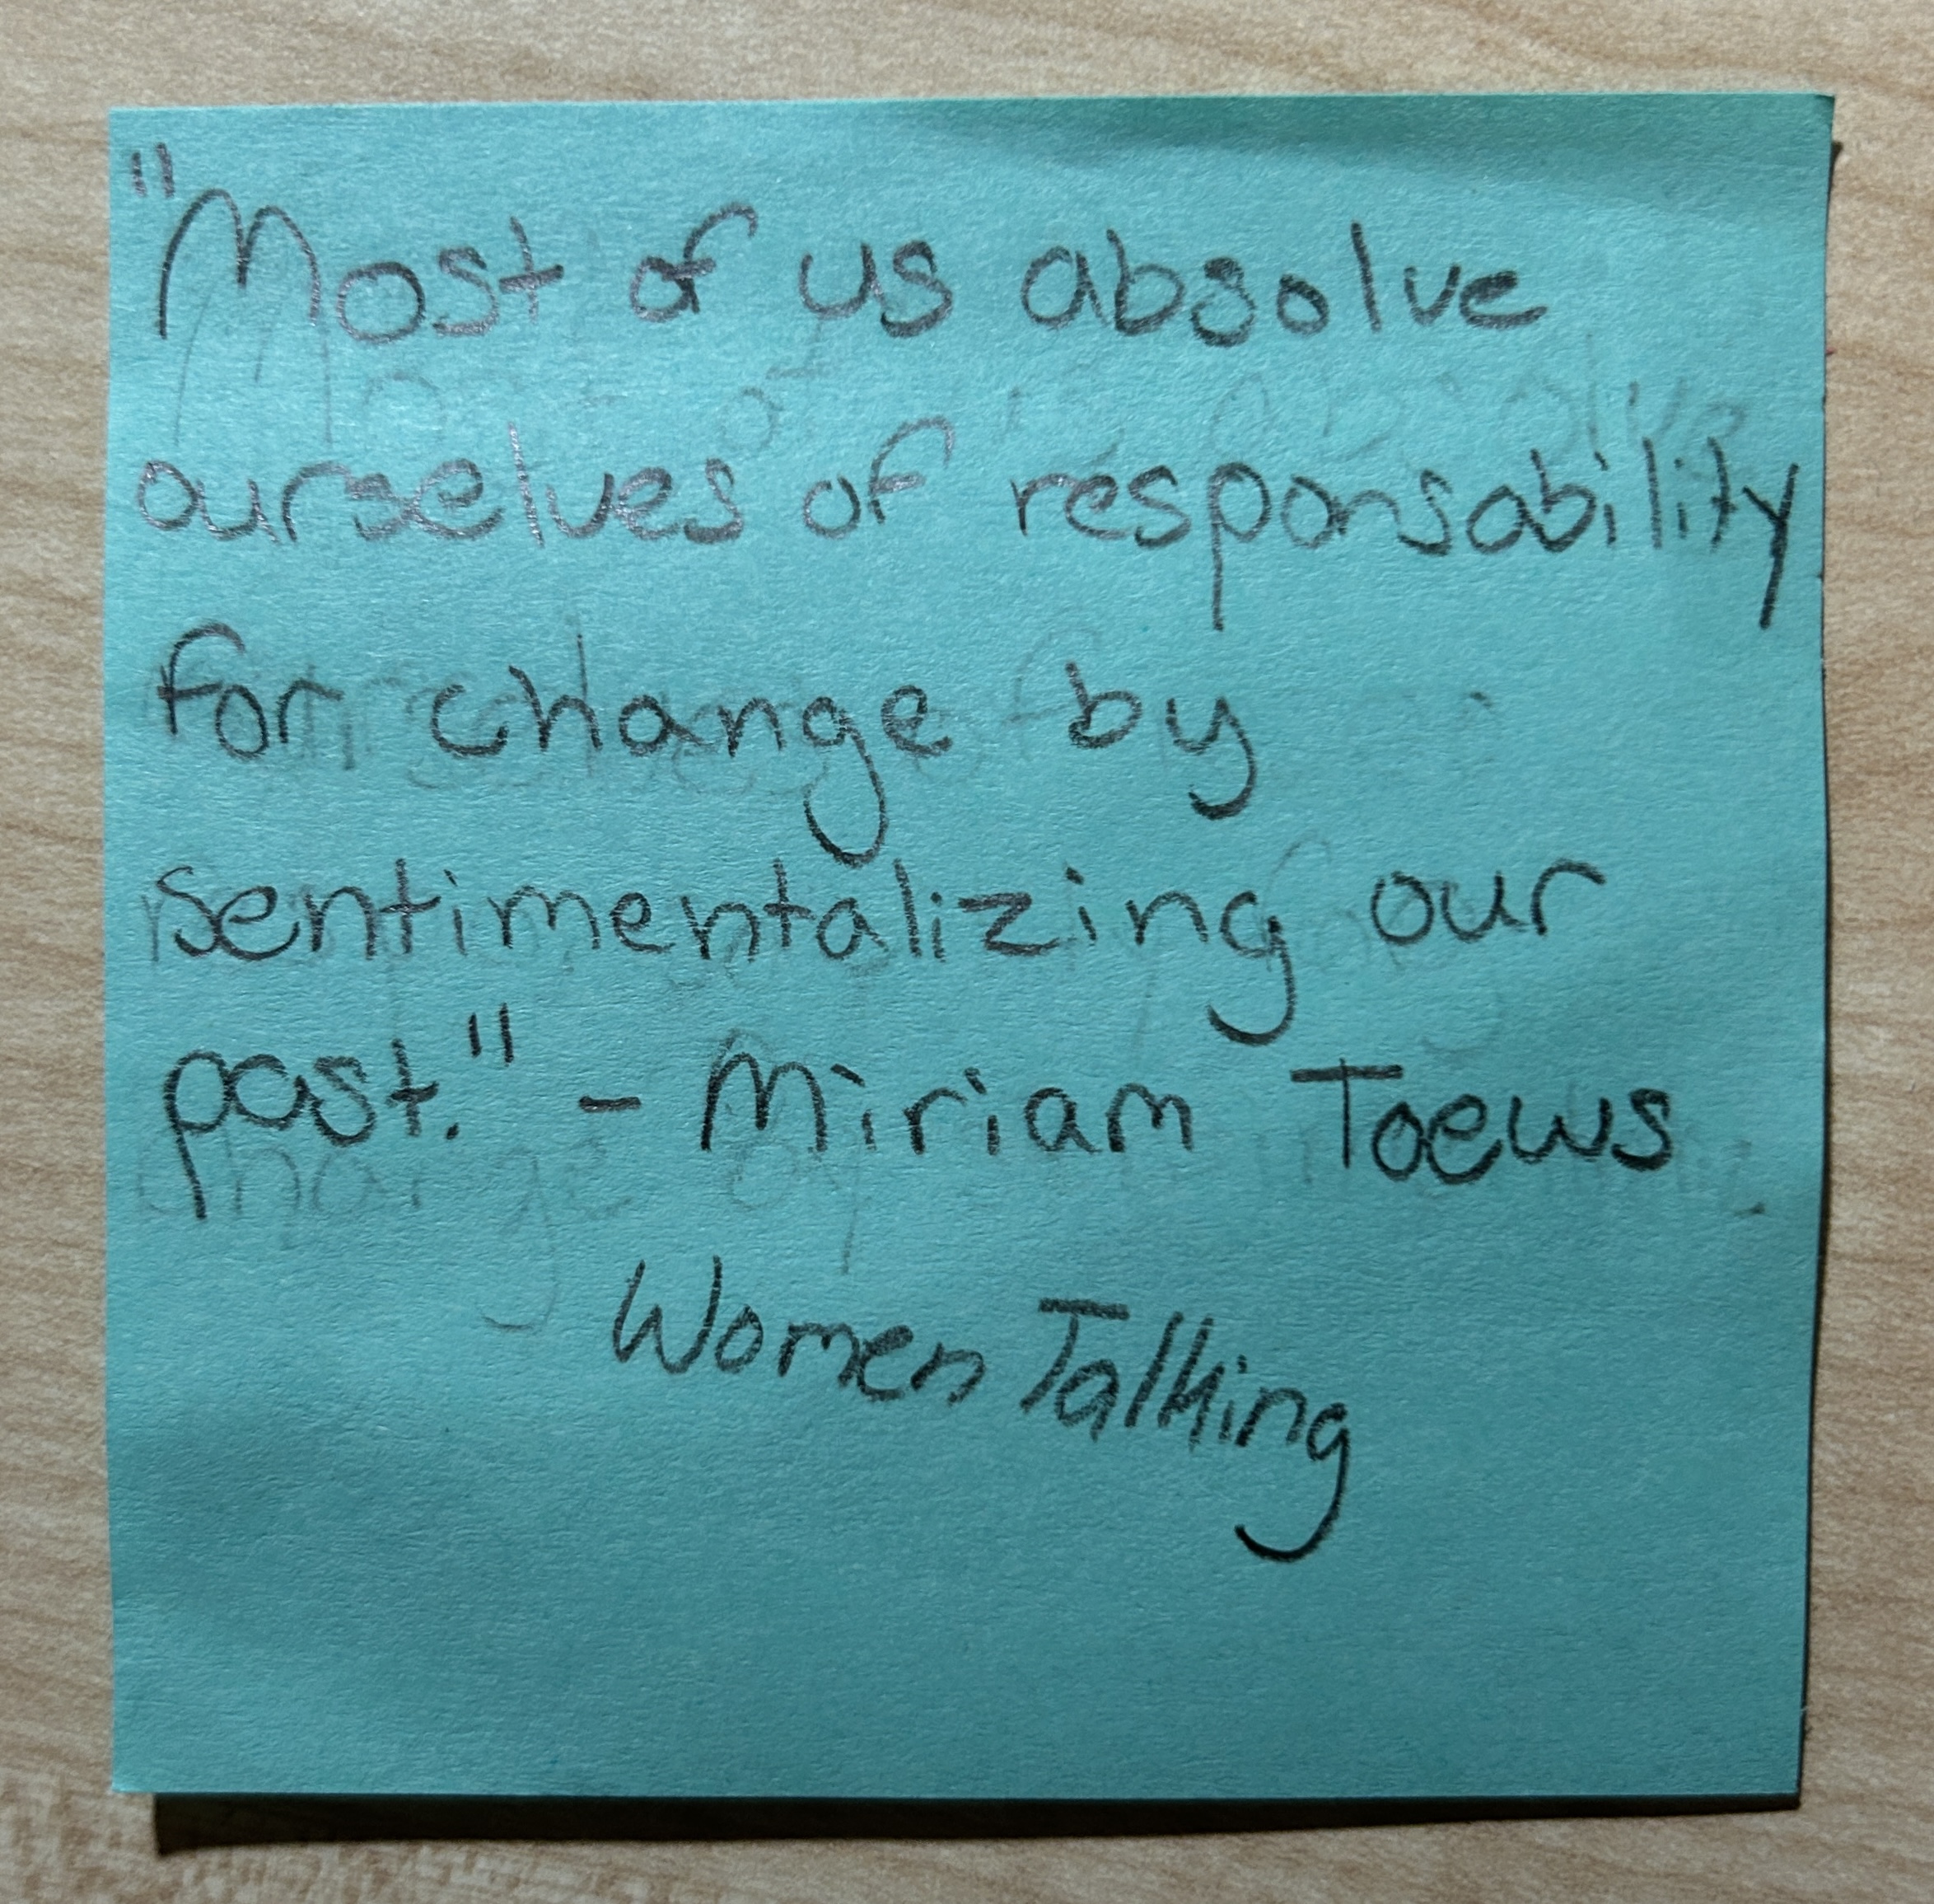 "Most of us absolve
ourselves of responsability
for change by
sentimentalizing our
past." - Miriam Toews
Women Talking